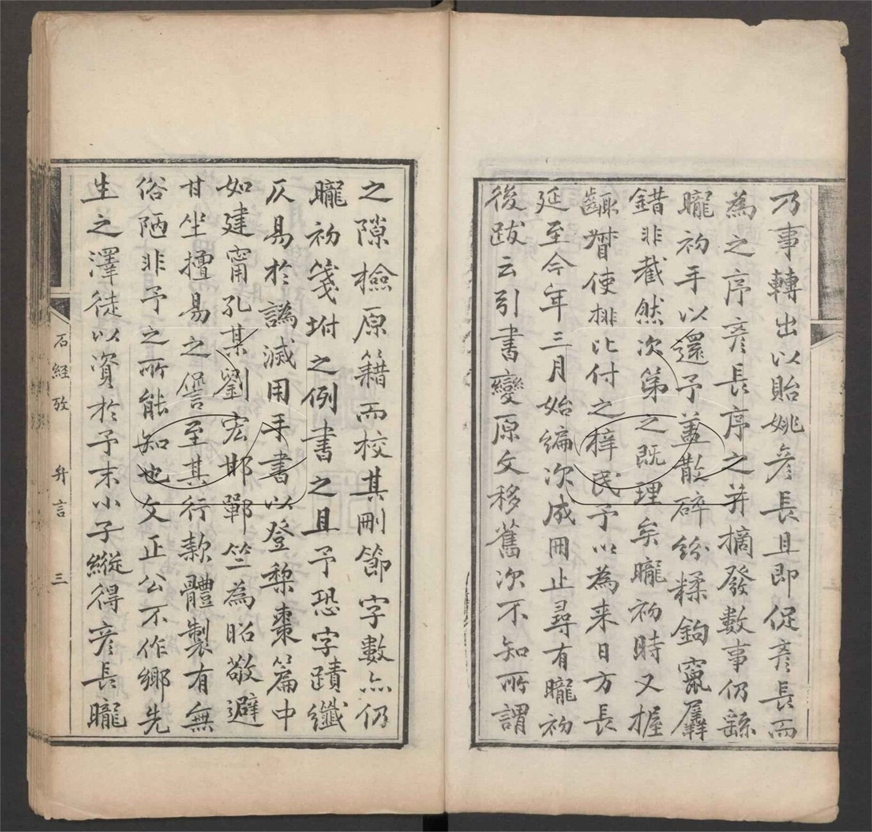 乃事轉出以貽姚彥長且即促彥長而
為之序彥長序之并摘發數事仍繇
矓初手以還予蓋散碎紛糅鉤窾羼
錯非截然次第之既理矣矓初時又握
齱聟使排比付之梓民予以為来日方長
延至今年三月始編次成冊止尋有矓初
後跋云引書變原文移舊次不知所謂
之隙檢原籍而校其刪節字數亦仍
矓初箋坿之例書之且予恐字蹟纖
仄易於譌滅用手書以登棃棗篇中
如建甯孔某劉宏邯鄲竺為昭敬避
甘坐擅易之諐至其行款體製有無
俗陋非予之所能知也文正公不作鄉先
生之澤徒以資於予末小子縱得彥長矓
石經攷 弁言 三